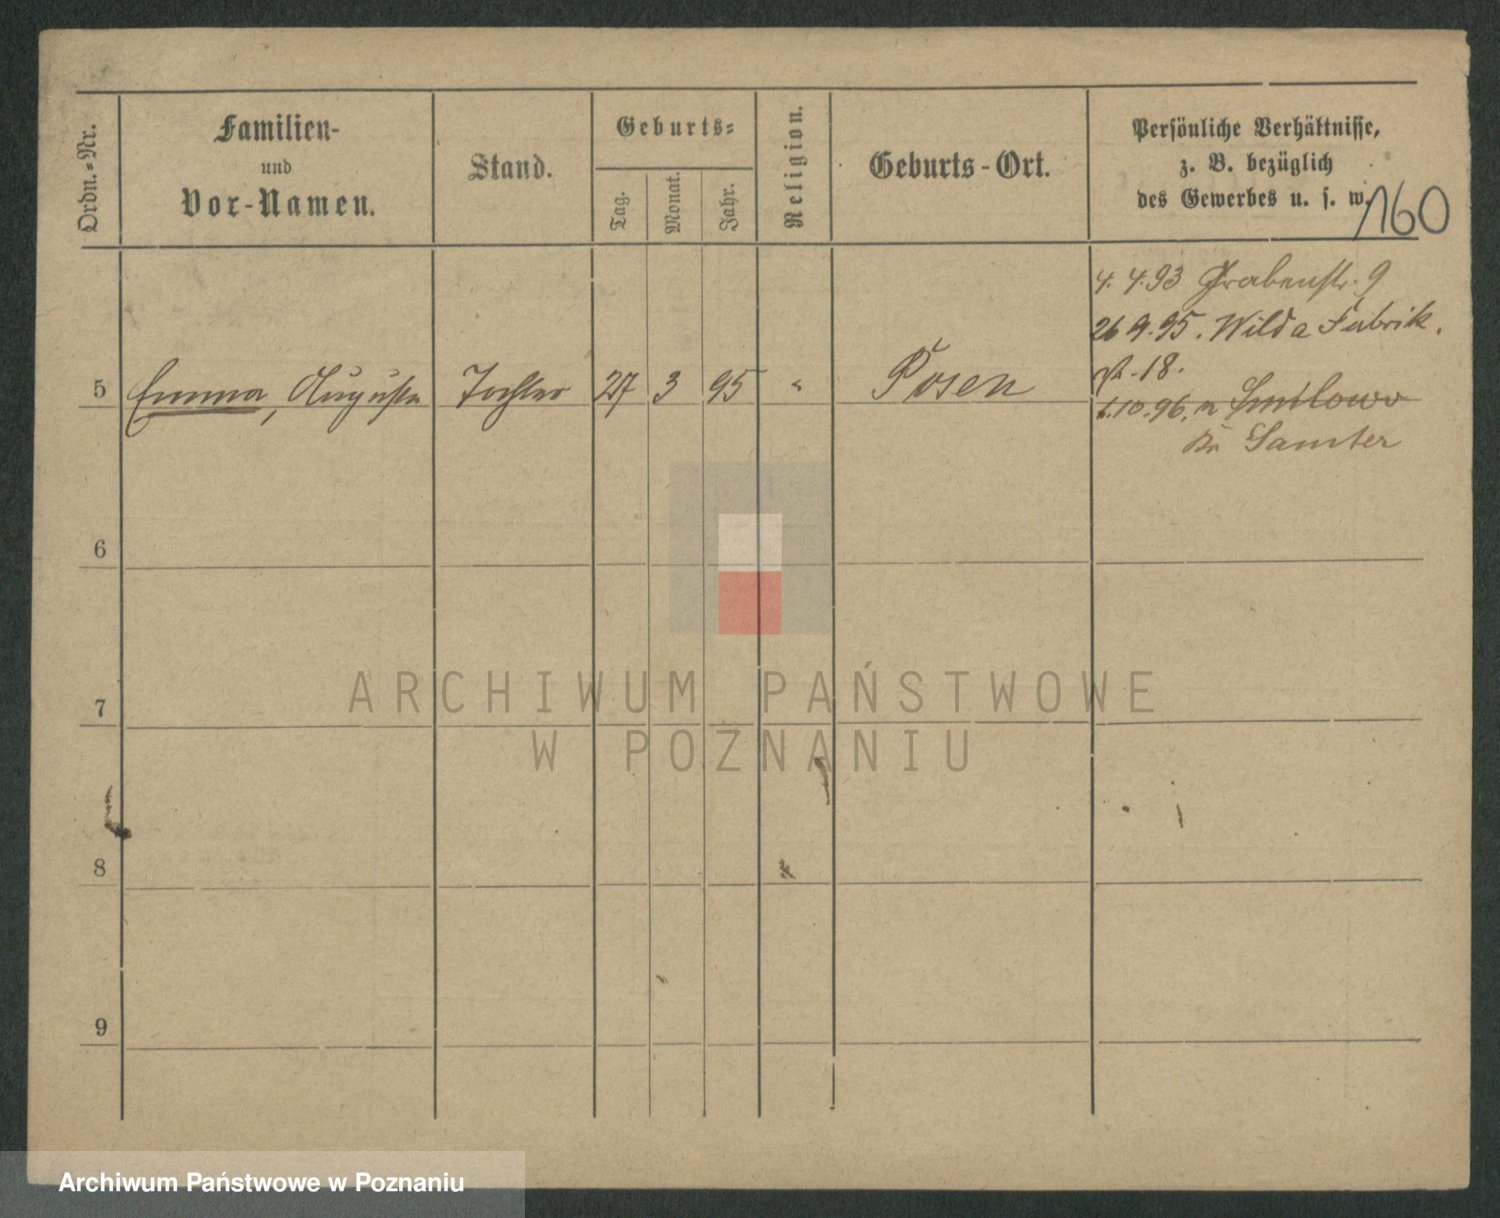 Ordn.-Nr.
Familien-
und
Vor-Namen.
Stand.
Geburts-
Tag.
Monat.
Jahr.
Religion.
Geburts-Ort.
Persönliche Verhältnisse,
z. B. bezüglich
des Gewerbes u. s. w.
160
4. 4. 93 Grabenstr. 9
26 9. 95. Wilda Fabrik.
str. 18.
5 Emma, Auguste Tochter 27 3 95 " Posen
1.10.96. n Smilowo
Kr Samter
6
7
8
9
ARCHIWUM PAŃSTWOWE
W POZNANIU
Archiwum Państwowe w Poznaniu